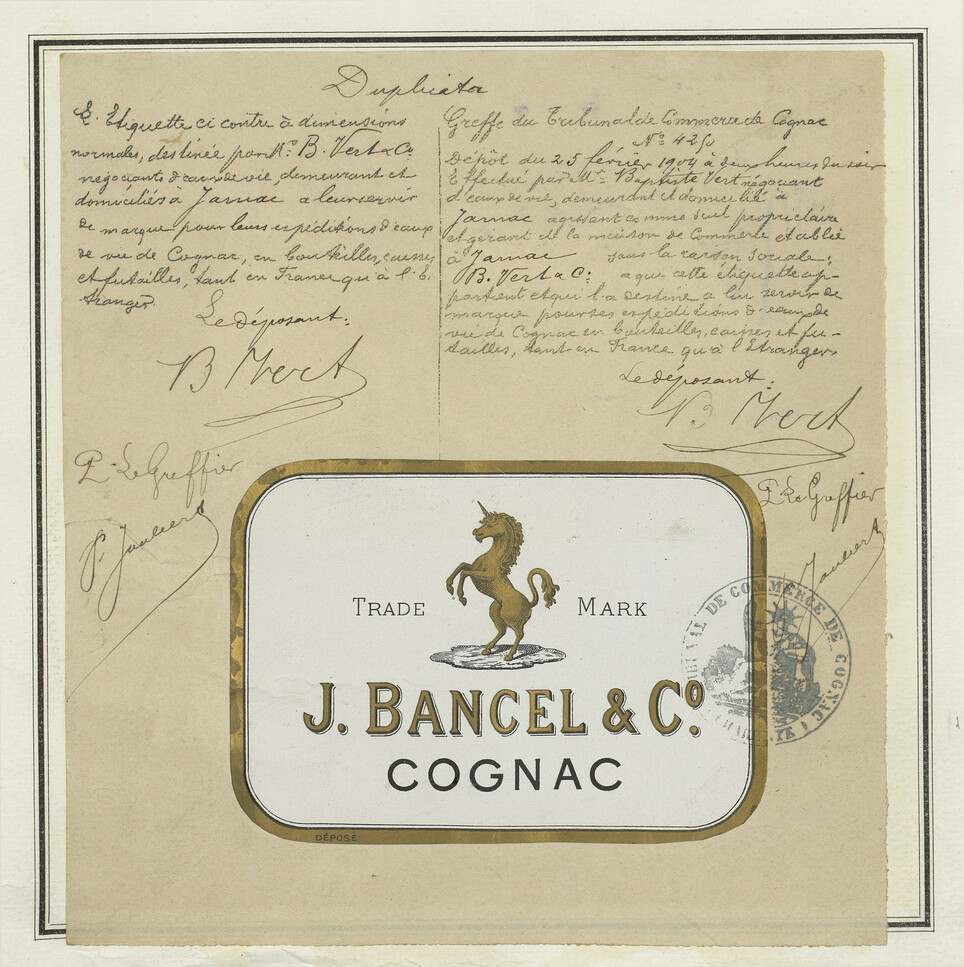 Duplicata
L'Etiquette ci contre à dimensions
normales, destinée par Mr. B. Vert & Co
négociants d'eaux de vie, demeurant et
domiciliés à Jarnac a leur servir
de marque pour leurs expéditions d'eaux
de vie de Cognac, en bouteilles, caisses
et futailles, tant en France qu'à l'E
tranger.
Le déposant:
B Vert
P. Le Greffier
P. Joubert
Greffe du Tribunal de Commerce de Cognac
No 425
Dépôt du 25 février 1904 à deux heures du soir
Effectué par Mr. Baptiste Vert négociant
d'eaux de vie, demeurant et domicilié à
Jarnac agissant comme seul propriétaire
et gérant de la maison de Commerce établie
à Jarnac sous la raison sociale:
B. Vert & Co: a que cette étiquette ap-
partient et qui l'a destine a lui servir de
marque pour ses expéditions d'eaux de
vie de Cognac en bouteilles, caisses et fu-
tailles, tant en France qu'à l'Etranger
Le déposant:
B Vert
P. Le Greffier
TRADE MARK
J. BANCEL & Co.
COGNAC
DÉPOSÉ
TRIBUNAL DE COMMERCE DE COGNAC